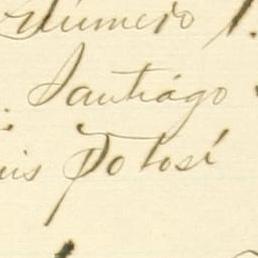 Número 1.
Santiágo
uis Potosí